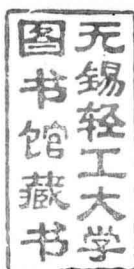 无锡轻工大学
图书馆藏书